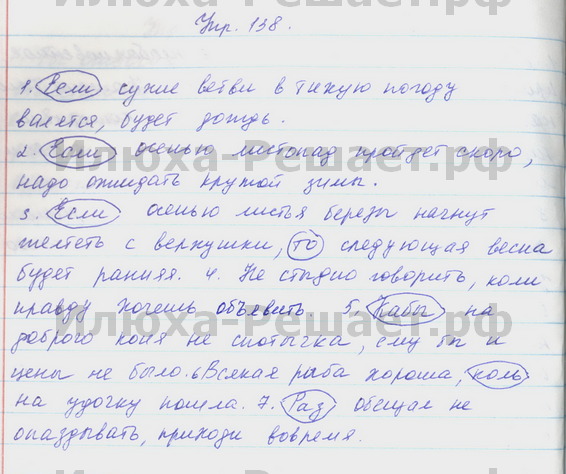 Упр. 138.
1. Если сухие ветви в тихую погоду
валятся, будет дождь.
2. Если осенью листопад пройдет скоро,
надо ожидать крутой зимы.
3. Если осенью листья березы начнут
желтеть с верхушки, то следующая весна
будет ранняя. 4. Не стыдно говорить, коли
правду хочешь объявить. 5. Кабы на
доброго коня не спотычка, ему бы и
цены не было. 6 Всякая рыба хороша, коль
на удочку пошла. 7. Раз обещал не
опаздывать, приходи вовремя.
Илюха-Решает.рф
Илюха-Решает.рф
Илюха-Решает.рф